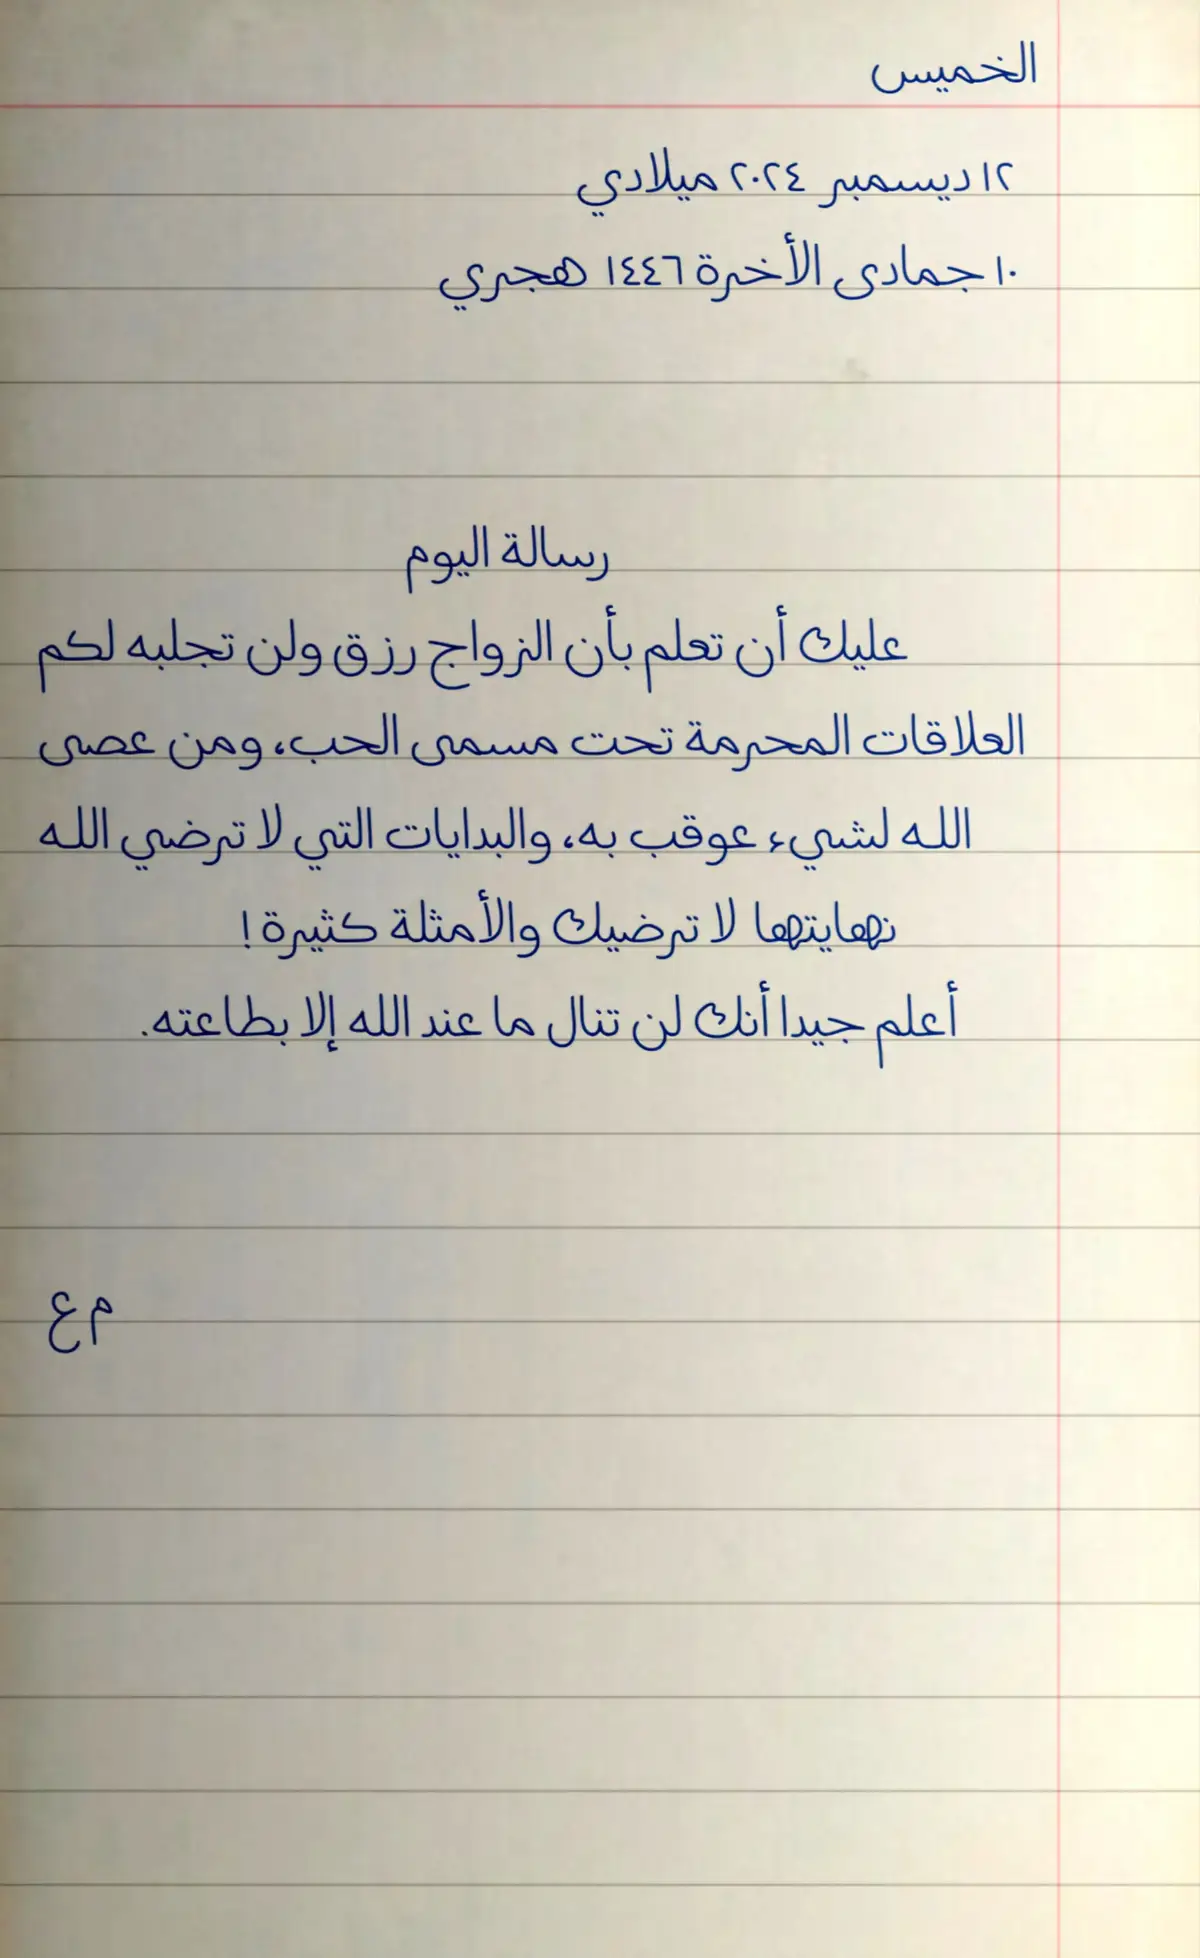 الخميس
١٢ ديسمبر ٢٠٢٤ ميلادي
١٠ جمادى الأخرة ١٤٤٦ هجري
رسالة اليوم
عليك أن تعلم بأن الزواج رزق ولن تجلبه لكم
العلاقات المحرمة تحت مسمى الحب، ومن عصى
الله لشيء عوقب به، والبدايات التي لا ترضي الله
نهايتها لا ترضيك والأمثلة كثيرة!
أعلم جيدا أنك لن تنال ما عند الله إلا بطاعته.
م ع